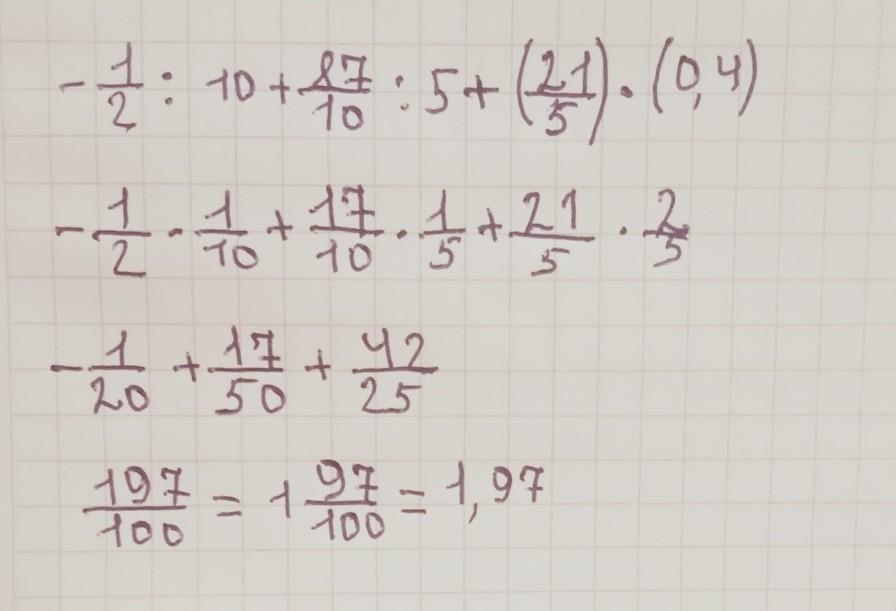 -1/2 : 10 + 87/10 : 5 + (21/5) · (0,4)
-1/2 · 1/10 + 17/10 · 1/5 + 21/5 · 2/5
-1/20 + 17/50 + 42/25
197/100 = 1 97/100 = 1,97